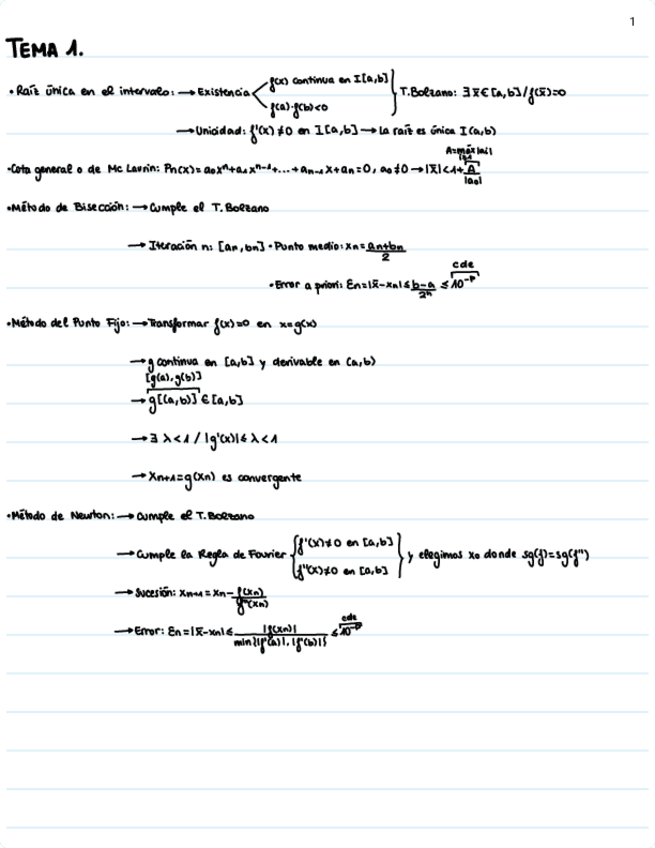 1
TEMA 1.
• Raíz única en el intervalo: → Existencia < f(x) continua en I[a,b] } T. Bolzano: ∃ x̄ ∈ [a,b] / f(x̄)=0
f(a)·f(b)<0
→ Unicidad: f'(x) ≠ 0 en I[a,b] → La raíz es única I(a,b)
A=máx|ai|
i≥1
• Cota general o de Mc Laurin: Pn(x)= a0xⁿ+a1xⁿ⁻¹+...+an-1x+an=0, a0≠0 → |x̄|<1+A/|a0|
• Método de Bisección: → Cumple el T. Bolzano
→ Iteración n: [an, bn] • Punto medio: xn= (an+bn)/2
cde
• Error a priori: Ɛn=|x̄-xn| ≤ (b-a)/2ⁿ ≤ 10⁻ᵖ
• Método del Punto Fijo: → Transformar f(x)=0 en x=g(x)
→ g continua en [a,b] y derivable en (a,b)
[g(a), g(b)]
→ g[(a,b)] ∈ [a,b]
→ ∃ λ<1 / |g'(x)| ≤ λ < 1
→ Xn+1=g(xn) es convergente
• Método de Newton: → Cumple el T. Bolzano
→ Cumple la Regla de Fourier { f'(x)≠0 en [a,b] } y elegimos x0 donde sg(f)=sg(f'')
f''(x)≠0 en [a,b]
→ Sucesión: xn+1 = xn - f(xn)/f'(xn)
cde
→ Error: Ɛn=|x̄-xn| ≤ |f(xn)|/min{|f'(a)|, |f'(b)|} ≤ 10⁻ᵖ